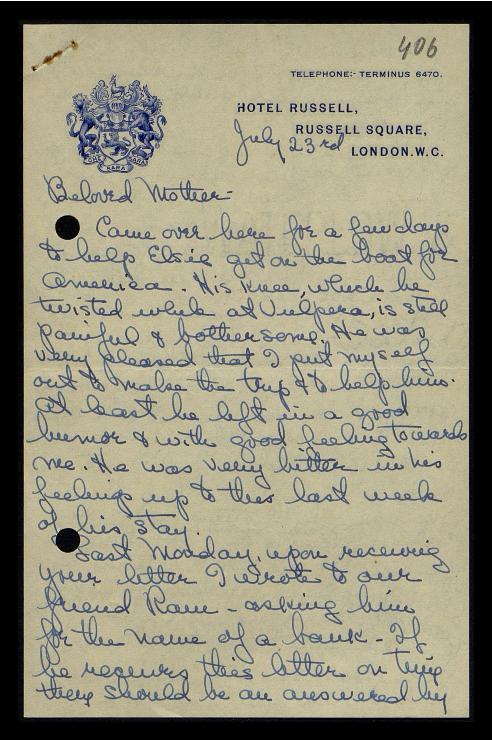 406
TELEPHONE:- TERMINUS 6470.
HOTEL RUSSELL,
RUSSELL SQUARE,
LONDON.W.C.
July 23rd
CHE SARA SARA
Beloved Mother-
Came over here for a few days
to help Elsie get on the boat for
America. His knee, which he
twisted while at Vulpera, is still
painful & bothersome. He was
very pleased that I put myself
out to make the trip & to help him.
At least he left in a good
humor & with good feeling towards
me. He was very bitter in his
feelings up to this last week
of his stay.
Last Monday, upon receiving
your letter I wrote to our
friend Ram - asking him
for the name of a bank - If
he receives this letter on time
there should be an answered by